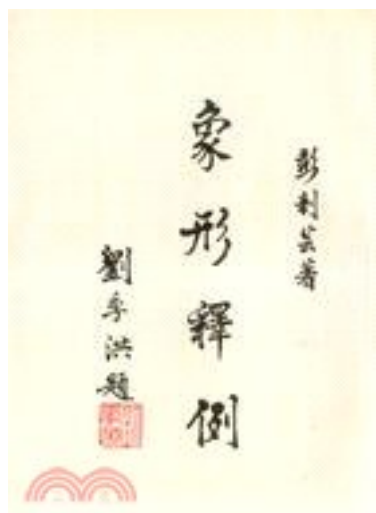 彭利芸著
象形釋例
劉季洪題